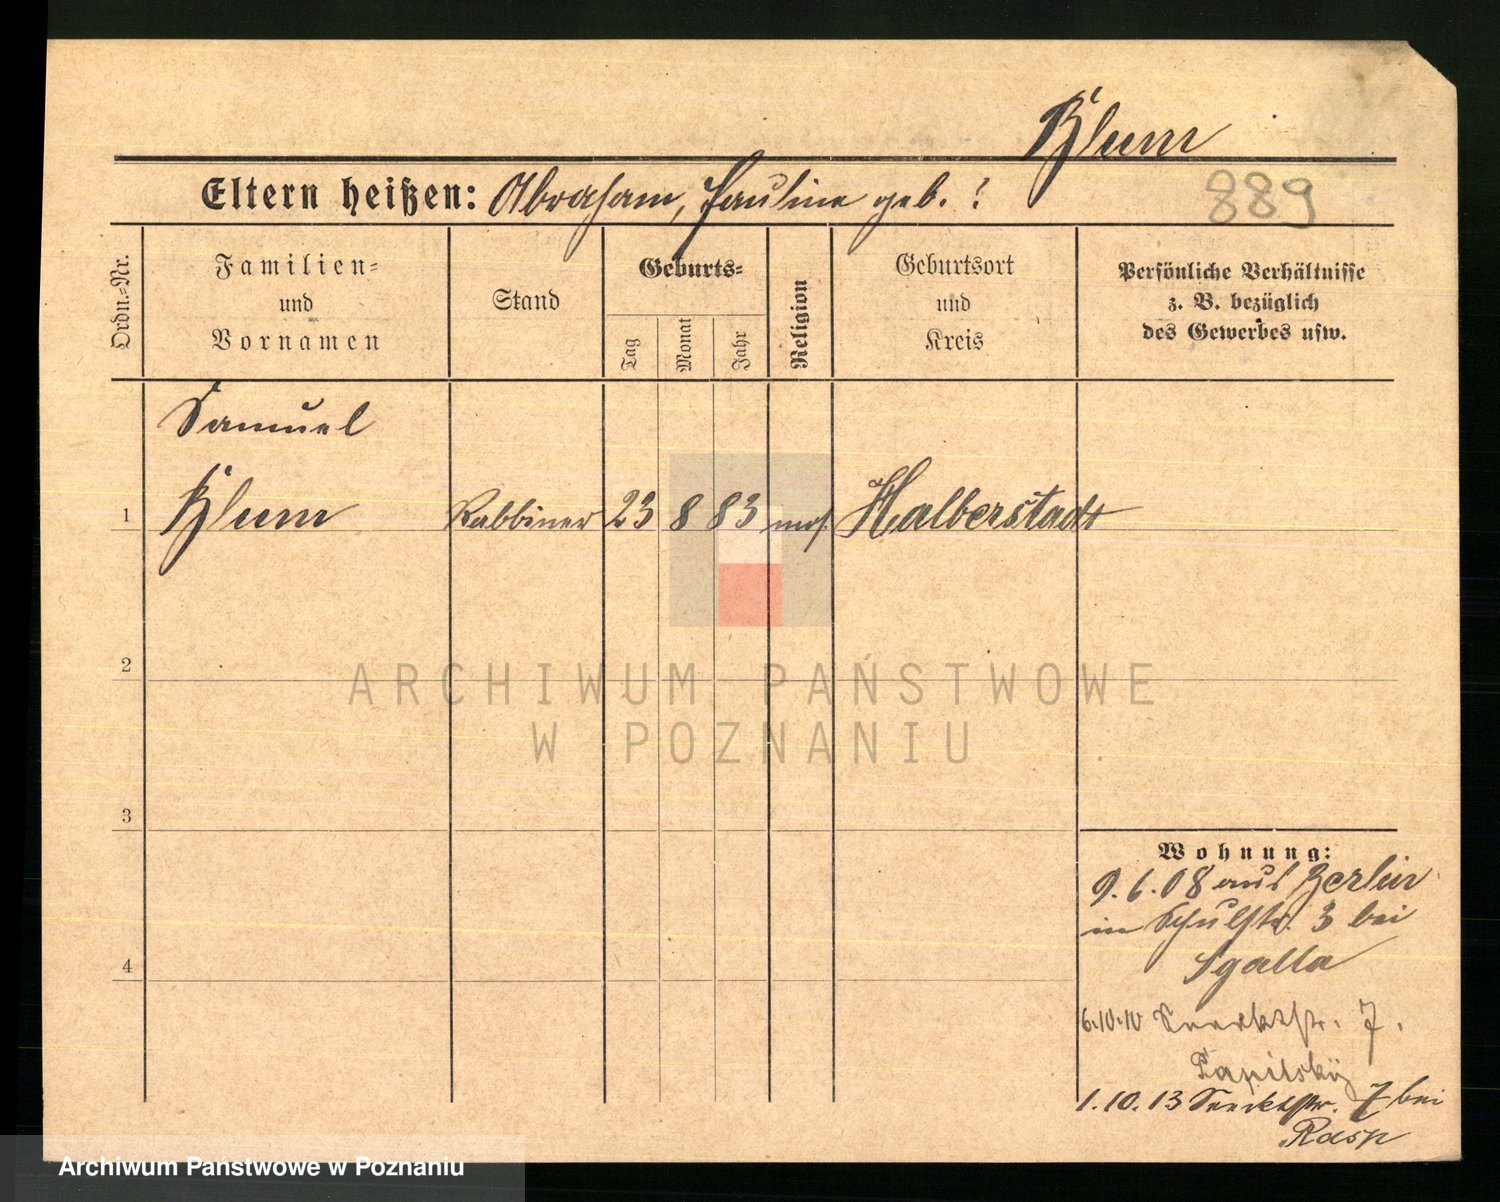 Blum
Eltern heißen: Abraham, Pauline geb. ?
889
Ordn.-Nr.
Familien-
und
Vornamen
Stand
Geburts-
Tag
Monat
Jahr
Religion
Geburtsort
und
Kreis
Persönliche Verhältnisse
z. B. bezüglich
des Gewerbes usw.
Samuel
1 Blum Rabbiner 23 8 83 mos. Halberstadt
2
3
4
Wohnung:
9.6.08 aus Berlin
in Schulstr. 3 bei
Sgalla
6.10.10 7.
1.10.13 7 bei
Rasp
ARCHIWUM PAŃSTWOWE
W POZNANIU
Archiwum Państwowe w Poznaniu